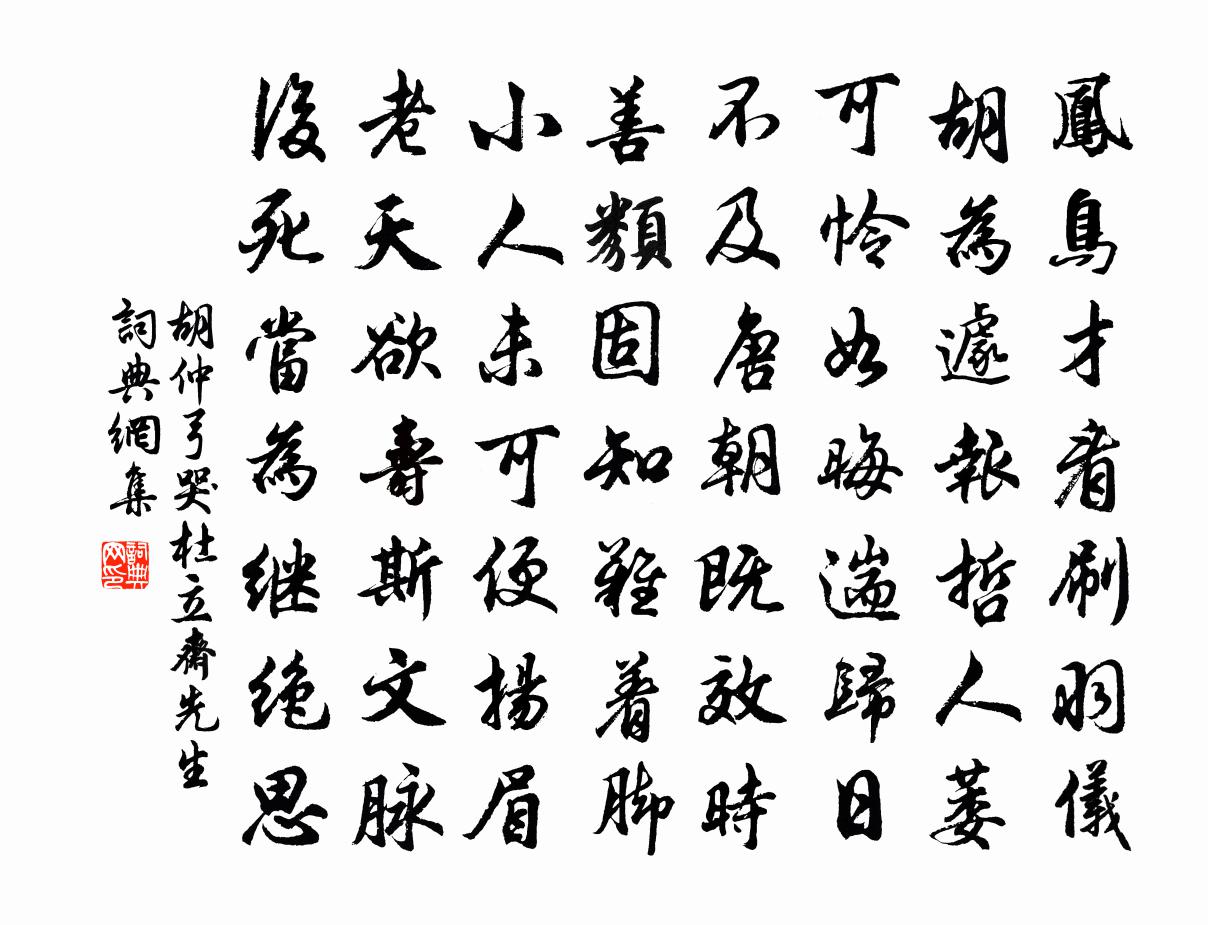 鳳鳥才看刷羽儀
胡為遽報哲人萎
可憐如晦遄歸日
不及唐朝既效時
善類固知難着脚
小人未可便揚眉
老天欲壽斯文脉
後死當為继绝思
胡仲弓哭杜立齋先生
詞典網集
詞典网印